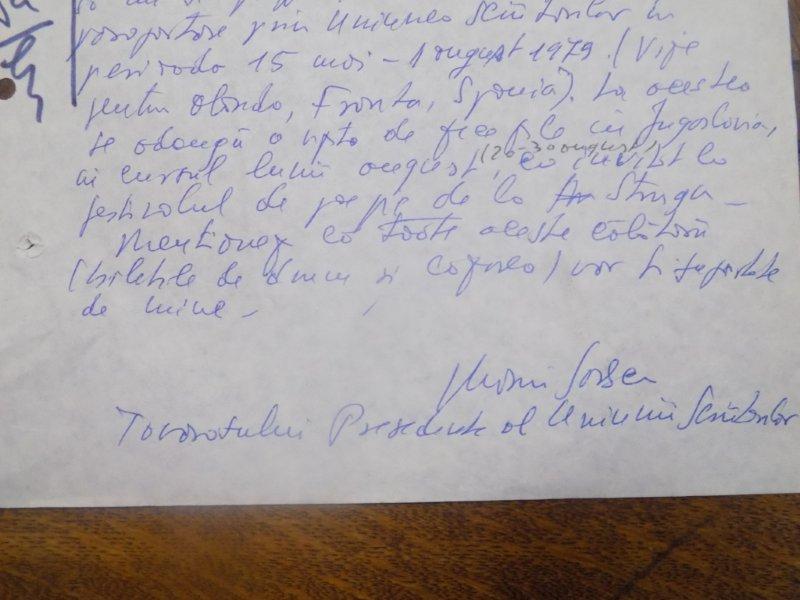 pașaportare prin Uniunea Scriitorilor în
perioada 15 mai – 1 august 1979. (Vize
pentru Olanda, Franța, Spania). La acestea
se adaugă o viză de zile în Jugoslavia,
în cursul lunii august, (20-30 august) ca invitat la
festivalul de poezie de la Struga –
Menționez că toate aceste călătorii
(biletele de drum și ) vor fi suportate
de mine –
Marin Sorescu
Tovarășului Președinte al Uniunii Scriitorilor